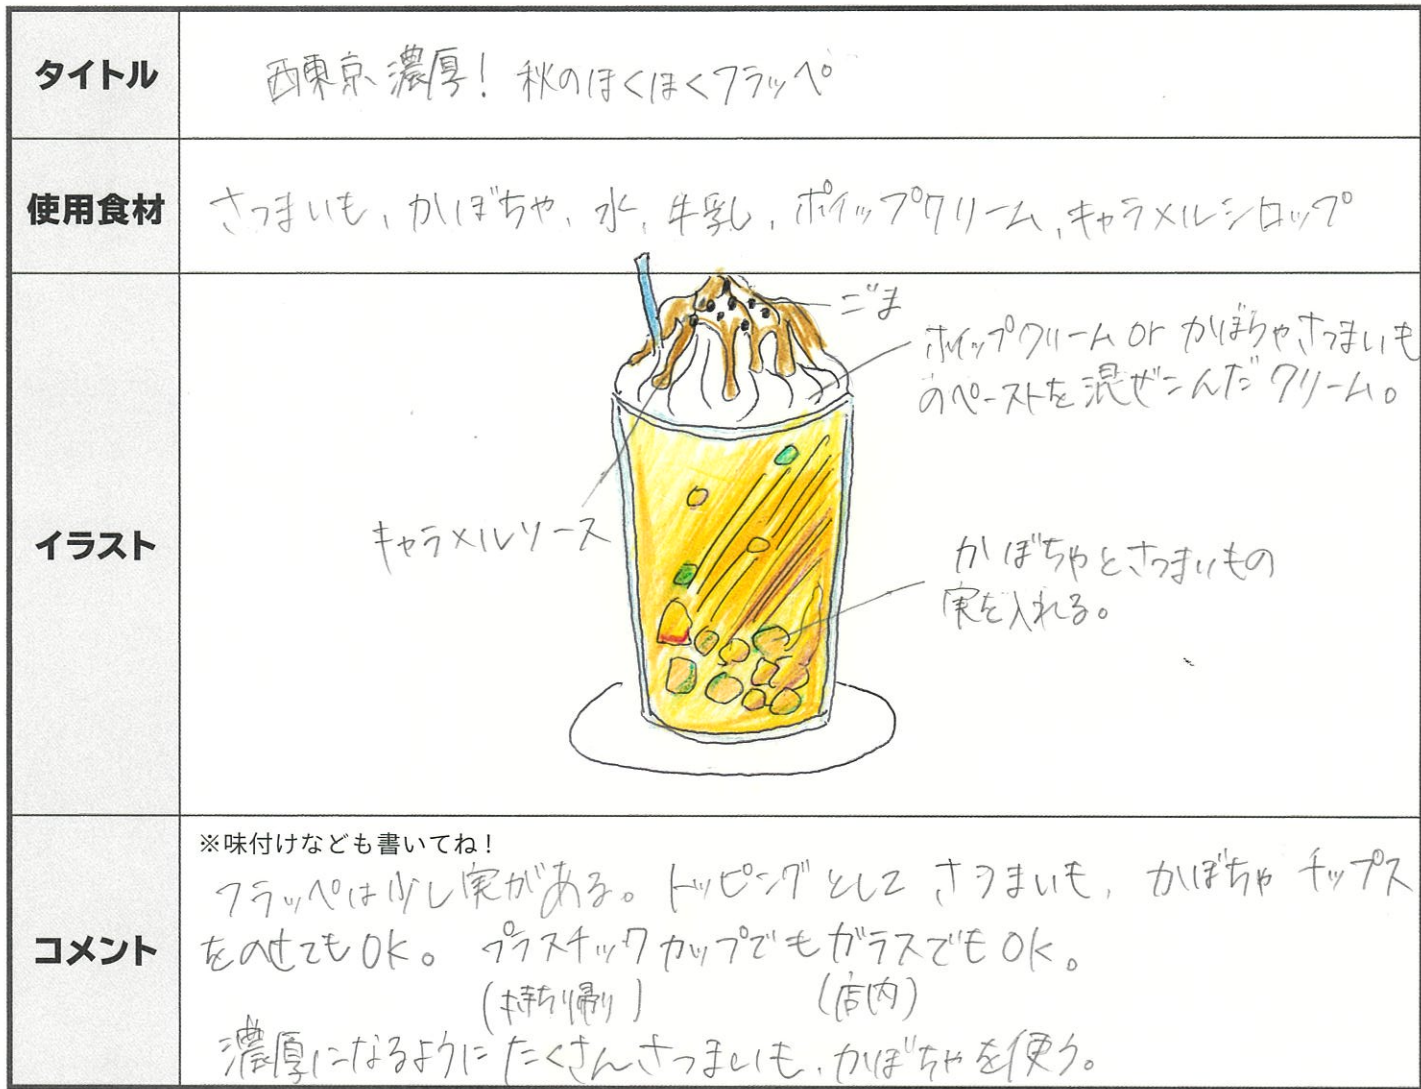 タイトル
西東京濃厚！ 秋のほくほくフラッペ
使用食材
さつまいも、かぼちゃ、水、牛乳し、ホイップクリーム、キャラメルシロップ
イラスト
ごま
ホイップクリーム or かぼちゃさつまいも
のペーストを混ぜこんだクリーム。
キャラメルソース
かぼちゃとさつまいもの
実を入れる。
コメント
※味付けなども書いてね！
フラッペは少し実がある。トッピングとして さつまいも、かぼちゃ チップス
をのせてもOK。 プラスチックカップでもガラスでもOK。
(持ち帰り) (店内)
濃厚になるように たくさんさつまいも、かぼちゃを使う。